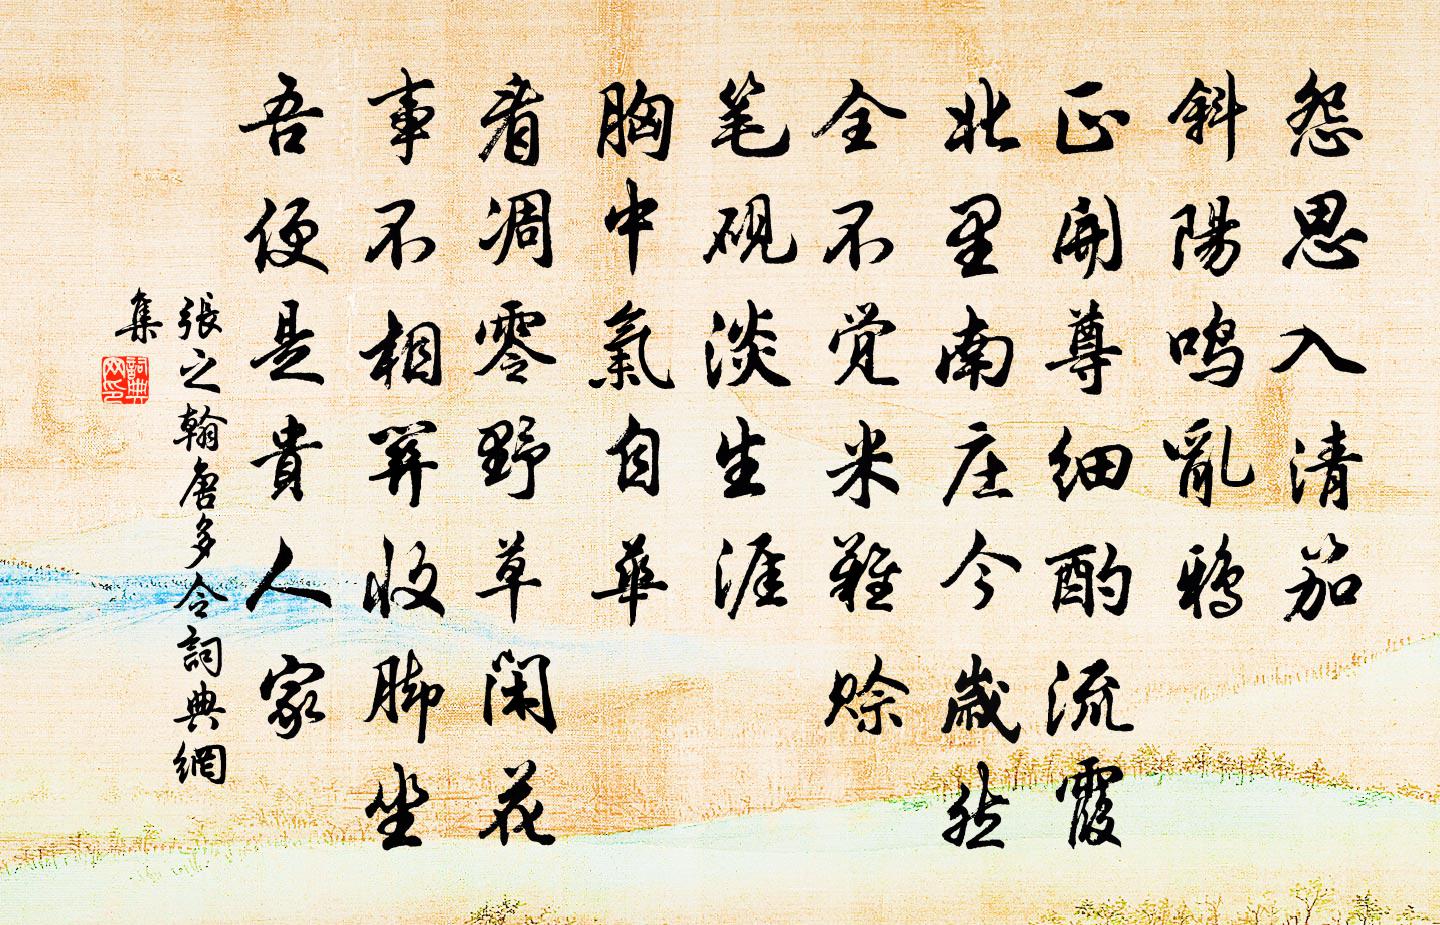 怨思入清笳
斜陽鳴亂鴉
正開尊細酌流霞
北里南庄今歲然
全不觉米難賒
笔硯淡生涯
胸中氣自華
看凋零野草閑花
事不相關收脚坐
吾便是貴人家
張之翰唐多令詞典網
集
詞典网印